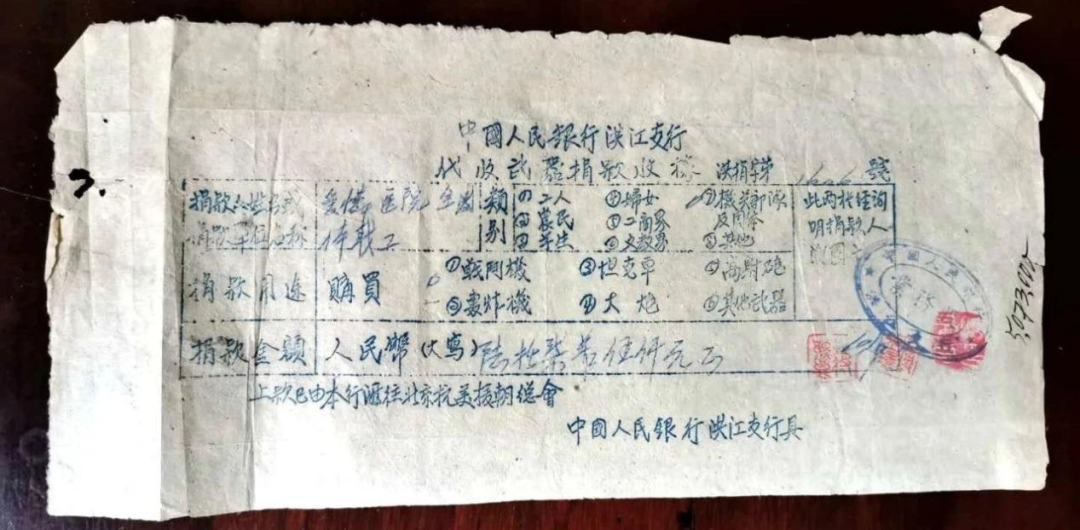 中國人民銀行洪江支行
代收武器捐款收据 洪捐字第1606號
捐款人姓名或 爱怜医院全 類 ①工人 ④婦女 ⑦機关部隊 此两栏經詢
捐款單位名称 体职工 別 ②農民 ⑤工商界 及团体 明捐款人
③学生 ⑥文教界 ⑧其他
捐款用途 購買 ①戰鬥機 ③坦克車 ⑤高射砲
②轰炸機 ④大炮 ⑥其他武器
捐款金額 人民幣(大写)陆拾柒万伍仟元正
上款已由本行滙往北京抗美援朝總會
中國人民銀行洪江支行具